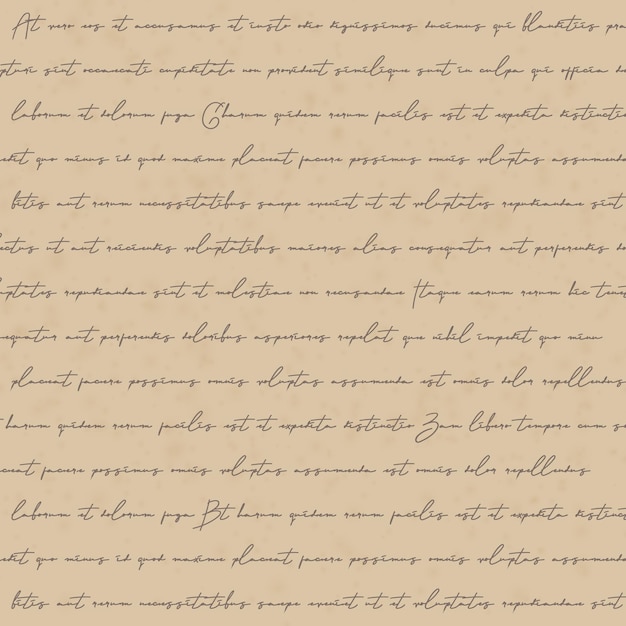 At vero eos et accusamus et iusto odio dignissimos ducimus qui blanditiis pra
pturi sint occaecati cupiditate non provident similique sunt in culpa qui officia de
laborum et dolorum fuga Charum quidem rerum facilis est et expedita distinctio
edit quo minus id quod maxime placeat facere possimus omnis voluptas assumenda
bitis aut rerum necessitatibus saepe eveniet ut et voluptates repudiandae sint
ectus ut aut reiciendis voluptatibus maiores alias consequatur aut perferendis do
uptates repudiandae sint et molestiae non recusandae Itaque earum rerum hic tenet
equatur aut perferendis doloribus asperiores repelat que nihil impedit quo minu
placeat facere possimus omnis voluptas assumenda est omnis dolor repellendus
harum quidem rerum facilis est et expedita distinctio Zam libero tempore cum so
ceat facere possimus omnis voluptas assumenda est omnis dolor repellendus
laborum et dolorum fuga Bt harum quidem rerum facilis est et expedita distinct
edit quo minus id quod maxime placeat facere possimus omnis voluptas assumenda
bitis aut rerum necessitatibus saepe eveniet ut et voluptates repudiandae sint